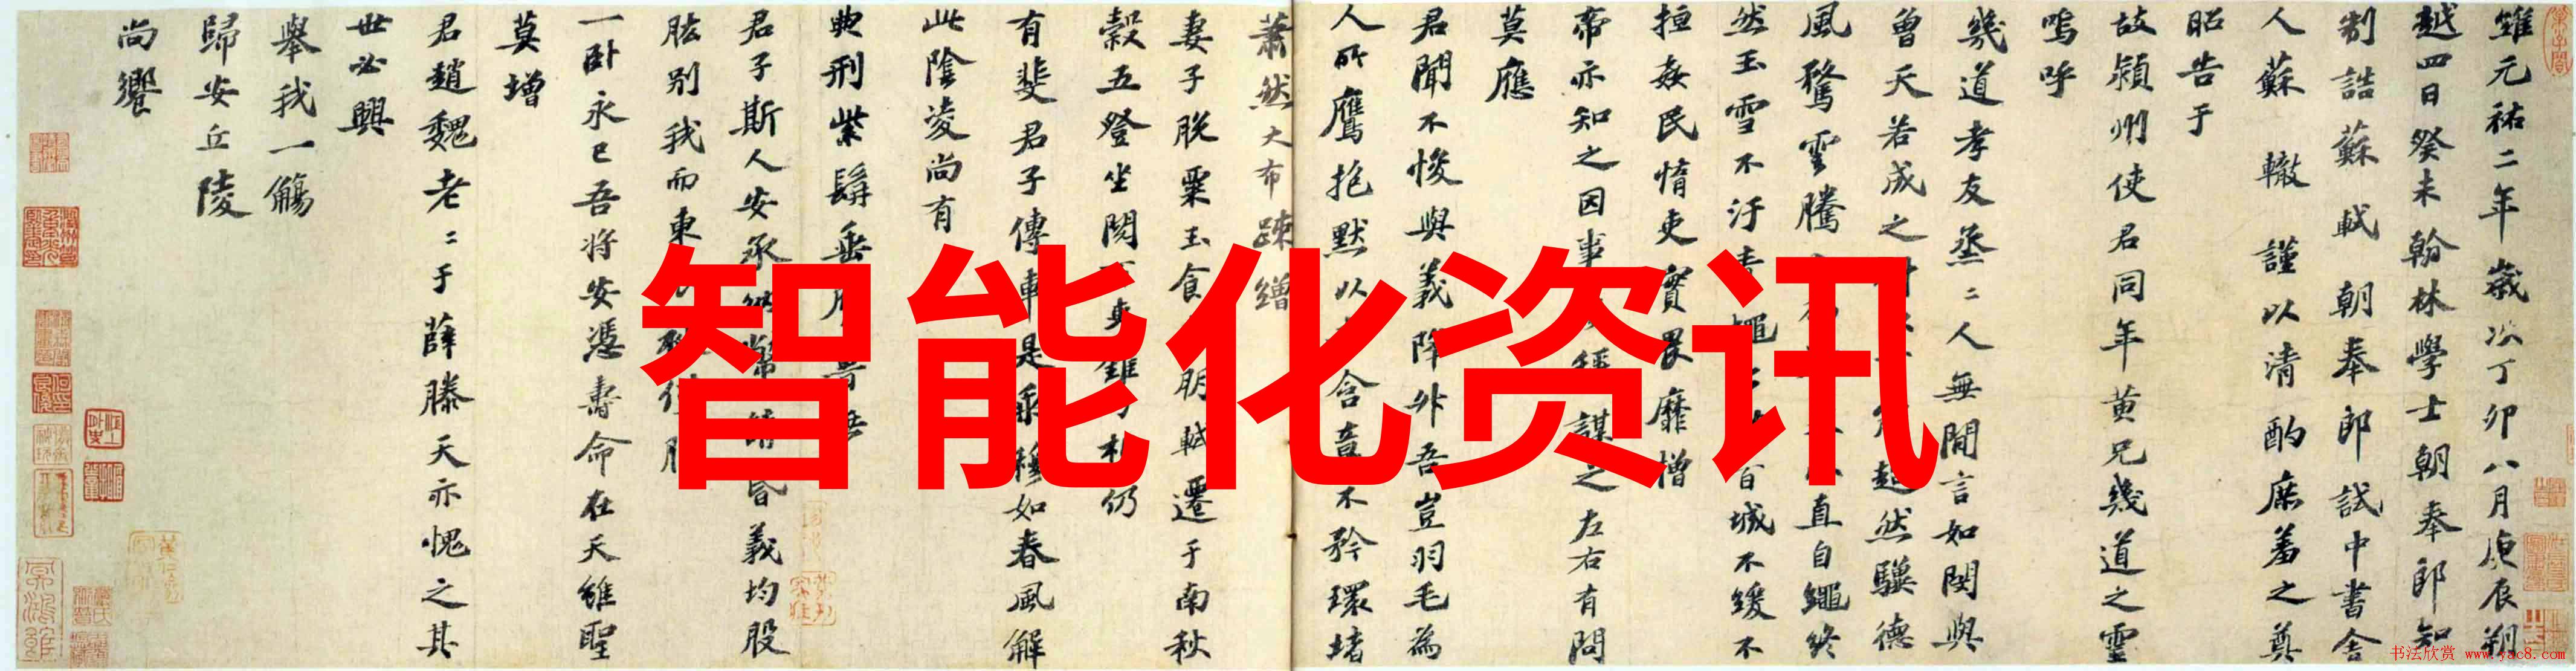 維元祐二年歲次丁卯八月庚辰朔
越四日癸未翰林學士朝奉郎知
制誥蘇軾朝奉郎試中書舍
人蘇轍謹以清酌庶羞之奠
昭告于
故潁州使君同年黃兄幾道之靈
嗚呼
幾道孝友烝〻人無間言如閔與
曾天若成之超然驥德
風騖雲騰直自繩終
然玉雪不汙青蠅百城不緩不
擅姦民惰吏實畏靡憎
帝亦知之因事謀之左右有問
莫應
君聞不悛與義降升吾豈羽毛為
人所鷹抱默以含章不矜環堵
蕭然大布疎繒
妻子脫粟玉食朋軾遷于南秋
穀五登坐閱錐刀相仍
有斐君子傳車是乘穆如春風解
此陰凌尚有
典刑紫髯垂膺魯無
君子斯人安承納幣請昏義均股
肱別我而東
一卧永已吾將安憑壽命在天維聖
莫增
君趙魏老〻于薛滕天亦愧之其
世必興
舉我一觴
歸安丘陵
尚饗
智能化资讯
书法欣赏 www.yac8.com